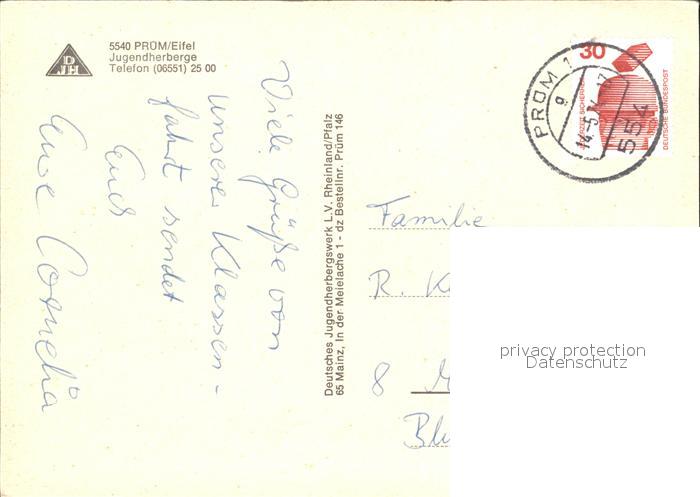 5540 PRÜM/Eifel
Jugendherberge
Telefon (06551) 25 00
DJH
Viele Grüße von
unserer Klassen-
fahrt sendet
Euch
Eure Cornelia
Deutsches Jugendherbergswerk L.V. Rheinland/Pfalz
65 Mainz, In der Meielache 1 - dz Bestellnr. Prüm 146
30
DEUTSCHE BUNDESPOST
PRÜM 1
554
Familie
R.
8
privacy protection
Datenschutz